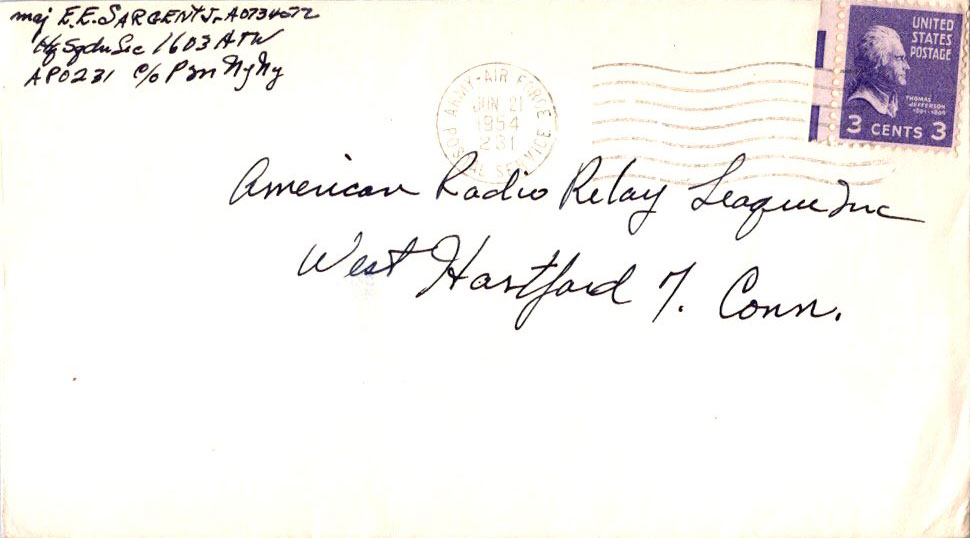 Maj E. E. SARGENT Jr A0734072
Hq Sqdn Sec 1603 ATW
APO 231 c/o P m Ny Ny
ARMY-AIR FORCE POSTAL SERVICE
JUN 21
1954
231
UNITED
STATES
POSTAGE
THOMAS
JEFFERSON
1801-1809
3 CENTS 3
American Radio Relay League Inc
West Hartford 7. Conn.